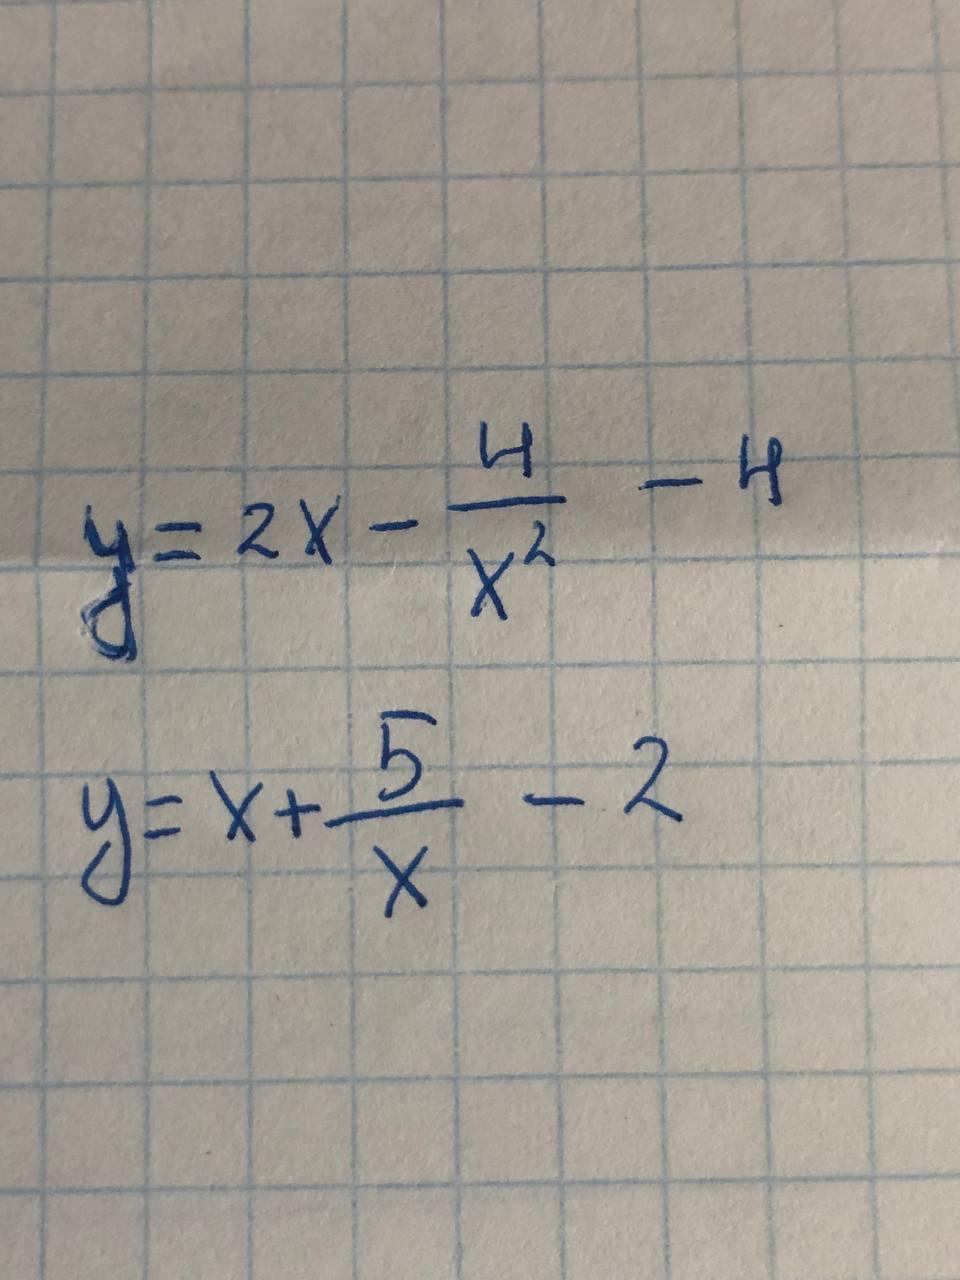 y = 2x - 4/x² - 4
y = x + 5/x - 2